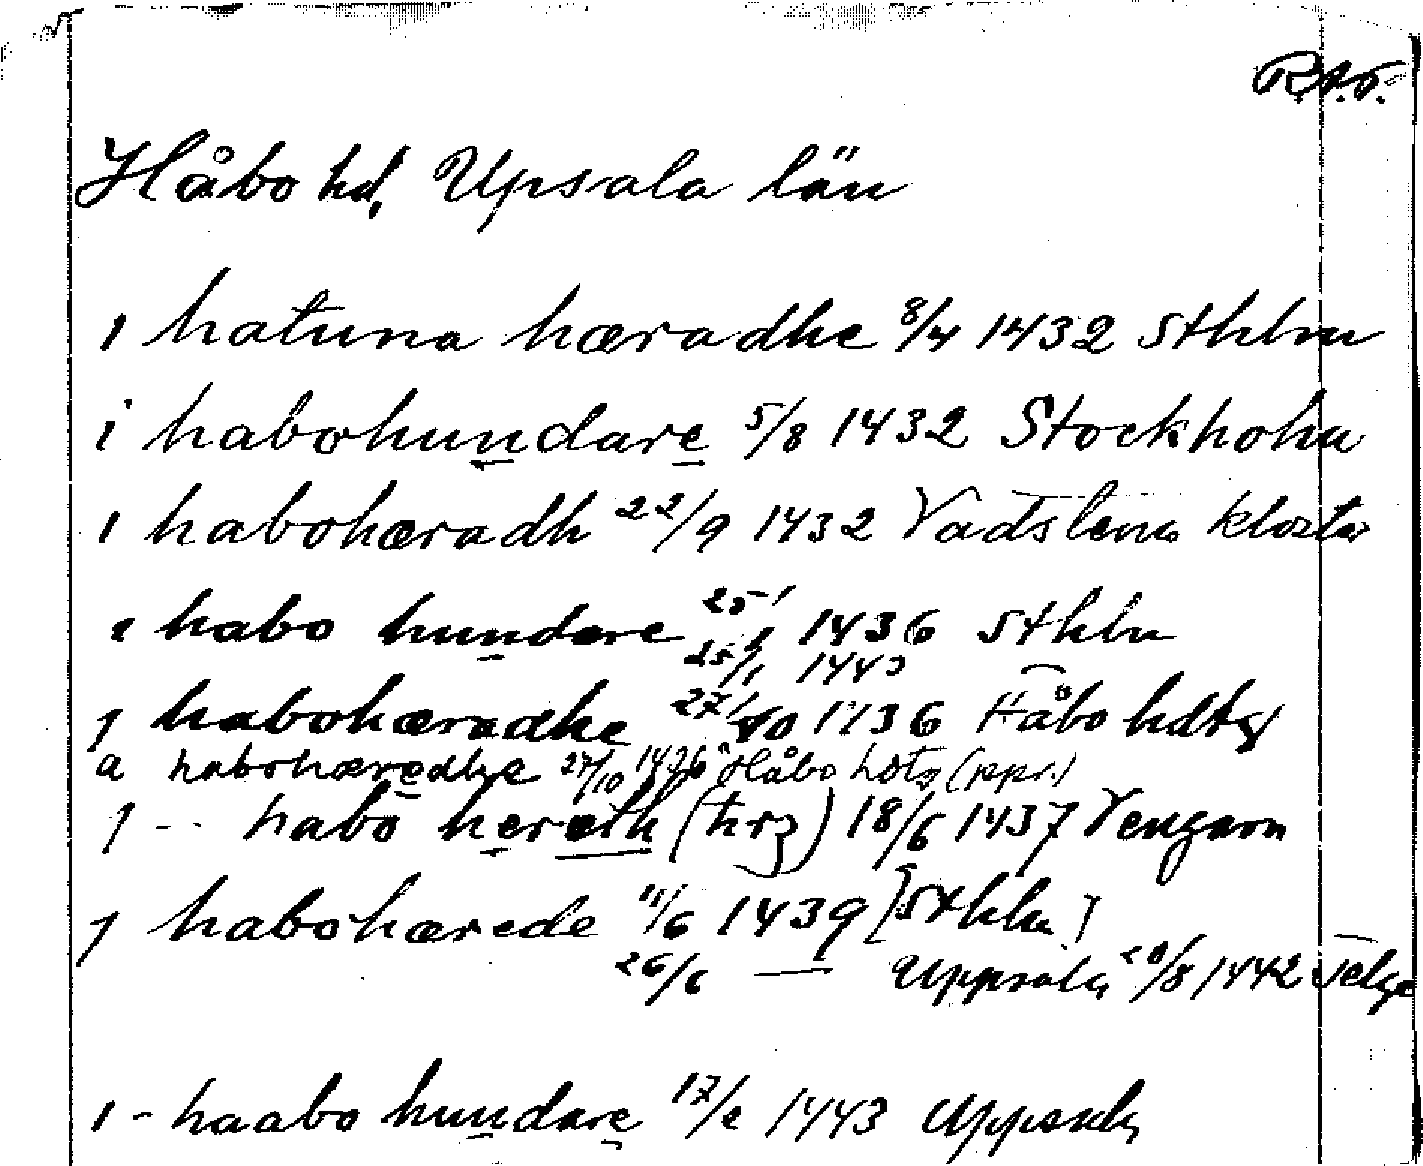 R.A.P.
Håbo hd, Upsala län
i hatuna hæradhe 8/4 1432 Sthlm
i habohundare 5/8 1432 Stockholm
i habohæradh 22/9 1432 Vadstena kloster
i habo hundare 25/1 1436 Sthlm
25/1 1443
j habohæradhe 27/10 1436 Håbo hdtg
a habohæredhe 27/10 1436 Håbo hdtg (ppr.)
j -- habo heræth (hrz) 18/6 1437 Vengarn
j habohærede 11/6 1439 [Sthlm]
26/6 — Uppsala, 20/8 1442 Telge
i - haabo hundare 17/2 1443 Uppsala